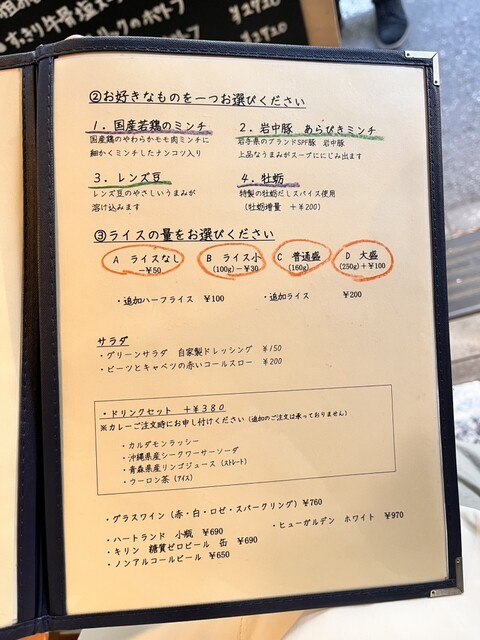 ¥2920
すっきり牛骨塩
リックのポトフ
¥2920
②お好きなものを一つお選びください
1. 国産若鶏のミンチ
国産鶏のやわらかモモ肉ミンチに
細かくミンチしたナンコツ入り
2. 岩中豚 あらびきミンチ
岩手県のブランドSPF豚 岩中豚
上品なうまみがスープににじみ出ます
3. レンズ豆
レンズ豆のやさしいうまみが
溶け込みます
4. 牡蛎
特製の牡蛎だしスパイス使用
(牡蛎増量 +¥200)
③ライスの量をお選びください
A ライスなし
-¥50
B ライス小
(100g)-¥30
C 普通盛
(160g)
D 大盛
(250g)+¥100
・追加ハーフライス ¥100
・追加ライス ¥200
サラダ
・グリーンサラダ 自家製ドレッシング ¥150
・ビーツとキャベツの赤いコールスロー ¥200
・ドリンクセット +¥380
※カレーご注文時にお申し付けください(追加のご注文は承っておりません)
・カルダモンラッシー
・沖縄県産シークワーサーソーダ
・青森県産リンゴジュース(ストレート)
・ウーロン茶(アイス)
・グラスワイン(赤・白・ロゼ・スパークリング)¥760
・ハートランド 小瓶 ¥690
・ヒューガルデン ホワイト ¥970
・キリン 糖質ゼロビール 缶 ¥690
・ノンアルコールビール ¥650